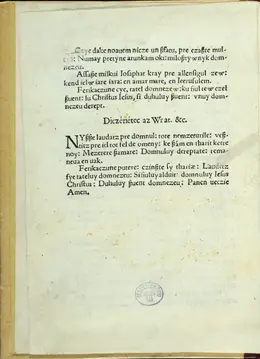 dake noaurm nicze un sfam, pre czaste mul-
Numay pretyne arunkam okulmilosty w nyk dom-
nezeu.
Assasie miskui Iosiphus kray pre allensigul zew:
kend iel w iare iara: en amar mare, en Ierusulem.
Ferikaczune cye, tatel domnezew: ku fiul tew czel
suent: lu Christus Iesus, si duhuluy suent: vnuy dom-
nezeu derept.
Diczeretee az Wrat. &c.
NYsse laudatz pre domnul: tote nemzeturile: ves-
nitz pre id tot fel de omeny: ke stam en tharit ketre
noy: Mezerere samare: Domnuluy dereptate: rema-
neua en uak.
Ferikaczune putere: czinste sy tharie: Laudetz
sye tateluy domnezeu: Si fiuluy aldui: domnuluy Iesus
Christus: Duhuluy suent domnezeu: Panen ueczie
Amen.